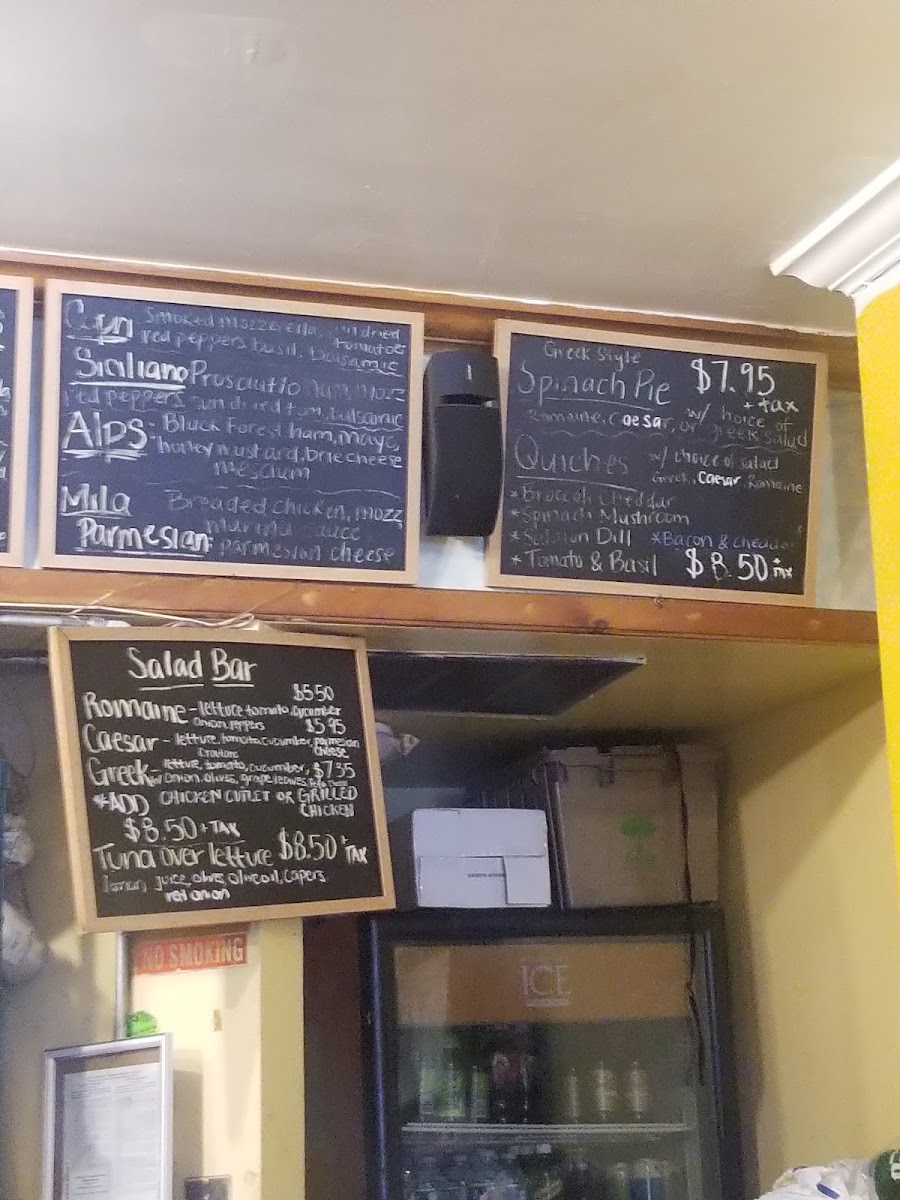 Smoked Mozzerella, sundried
tomatoe
red peppers basil, balsamic
Siciliano Proscuitto ham, mozz
red peppers sundried tom, balsamic
Alps - Black Forest ham, mayo,
honey mustard, brie cheese
mesclum
Mila Breaded chicken, mozz
marina sauce
Parmesian: parmesian cheese
Greek Style
Spinach Pie $7.95
+ tax
w/ choice of
Romaine, Caesar, or greek salad
Quiches w/ choice of salad
Greek, Caesar, Romaine
* Broccoli Cheddar
* Spinach Mushroom
* Salmon Dill * Bacon & cheddar
* Tomato & Basil $8.50 + tax
Salad Bar
$5.50
Romaine - lettuce tomato, cucumber
onion, peppers $5.95
Caesar - lettuce, tomato, cucumber, parmesian
croutons cheese
Greek - lettuce, tomato, cucumber, $7.35
onion, olives, grape leaves, Feta
*ADD CHICKEN CUTLET OR GRILLED
CHICKEN
$8.50 + TAX
Tuna over lettuce $8.50 + TAX
juice, olives, olive oil, capers
red onion
NO SMOKING
ICE